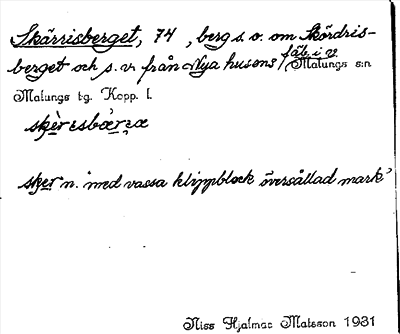 Skärrisberget, 74, berg s. o. om Skördris-
berget och s. v. från Nya husens fäb. i V
Malungs s:n
Malungs t-g. Kopp. l.
skær n. "med vassa klippblock översållad mark"
Niss Hjalmar Matsson 1931